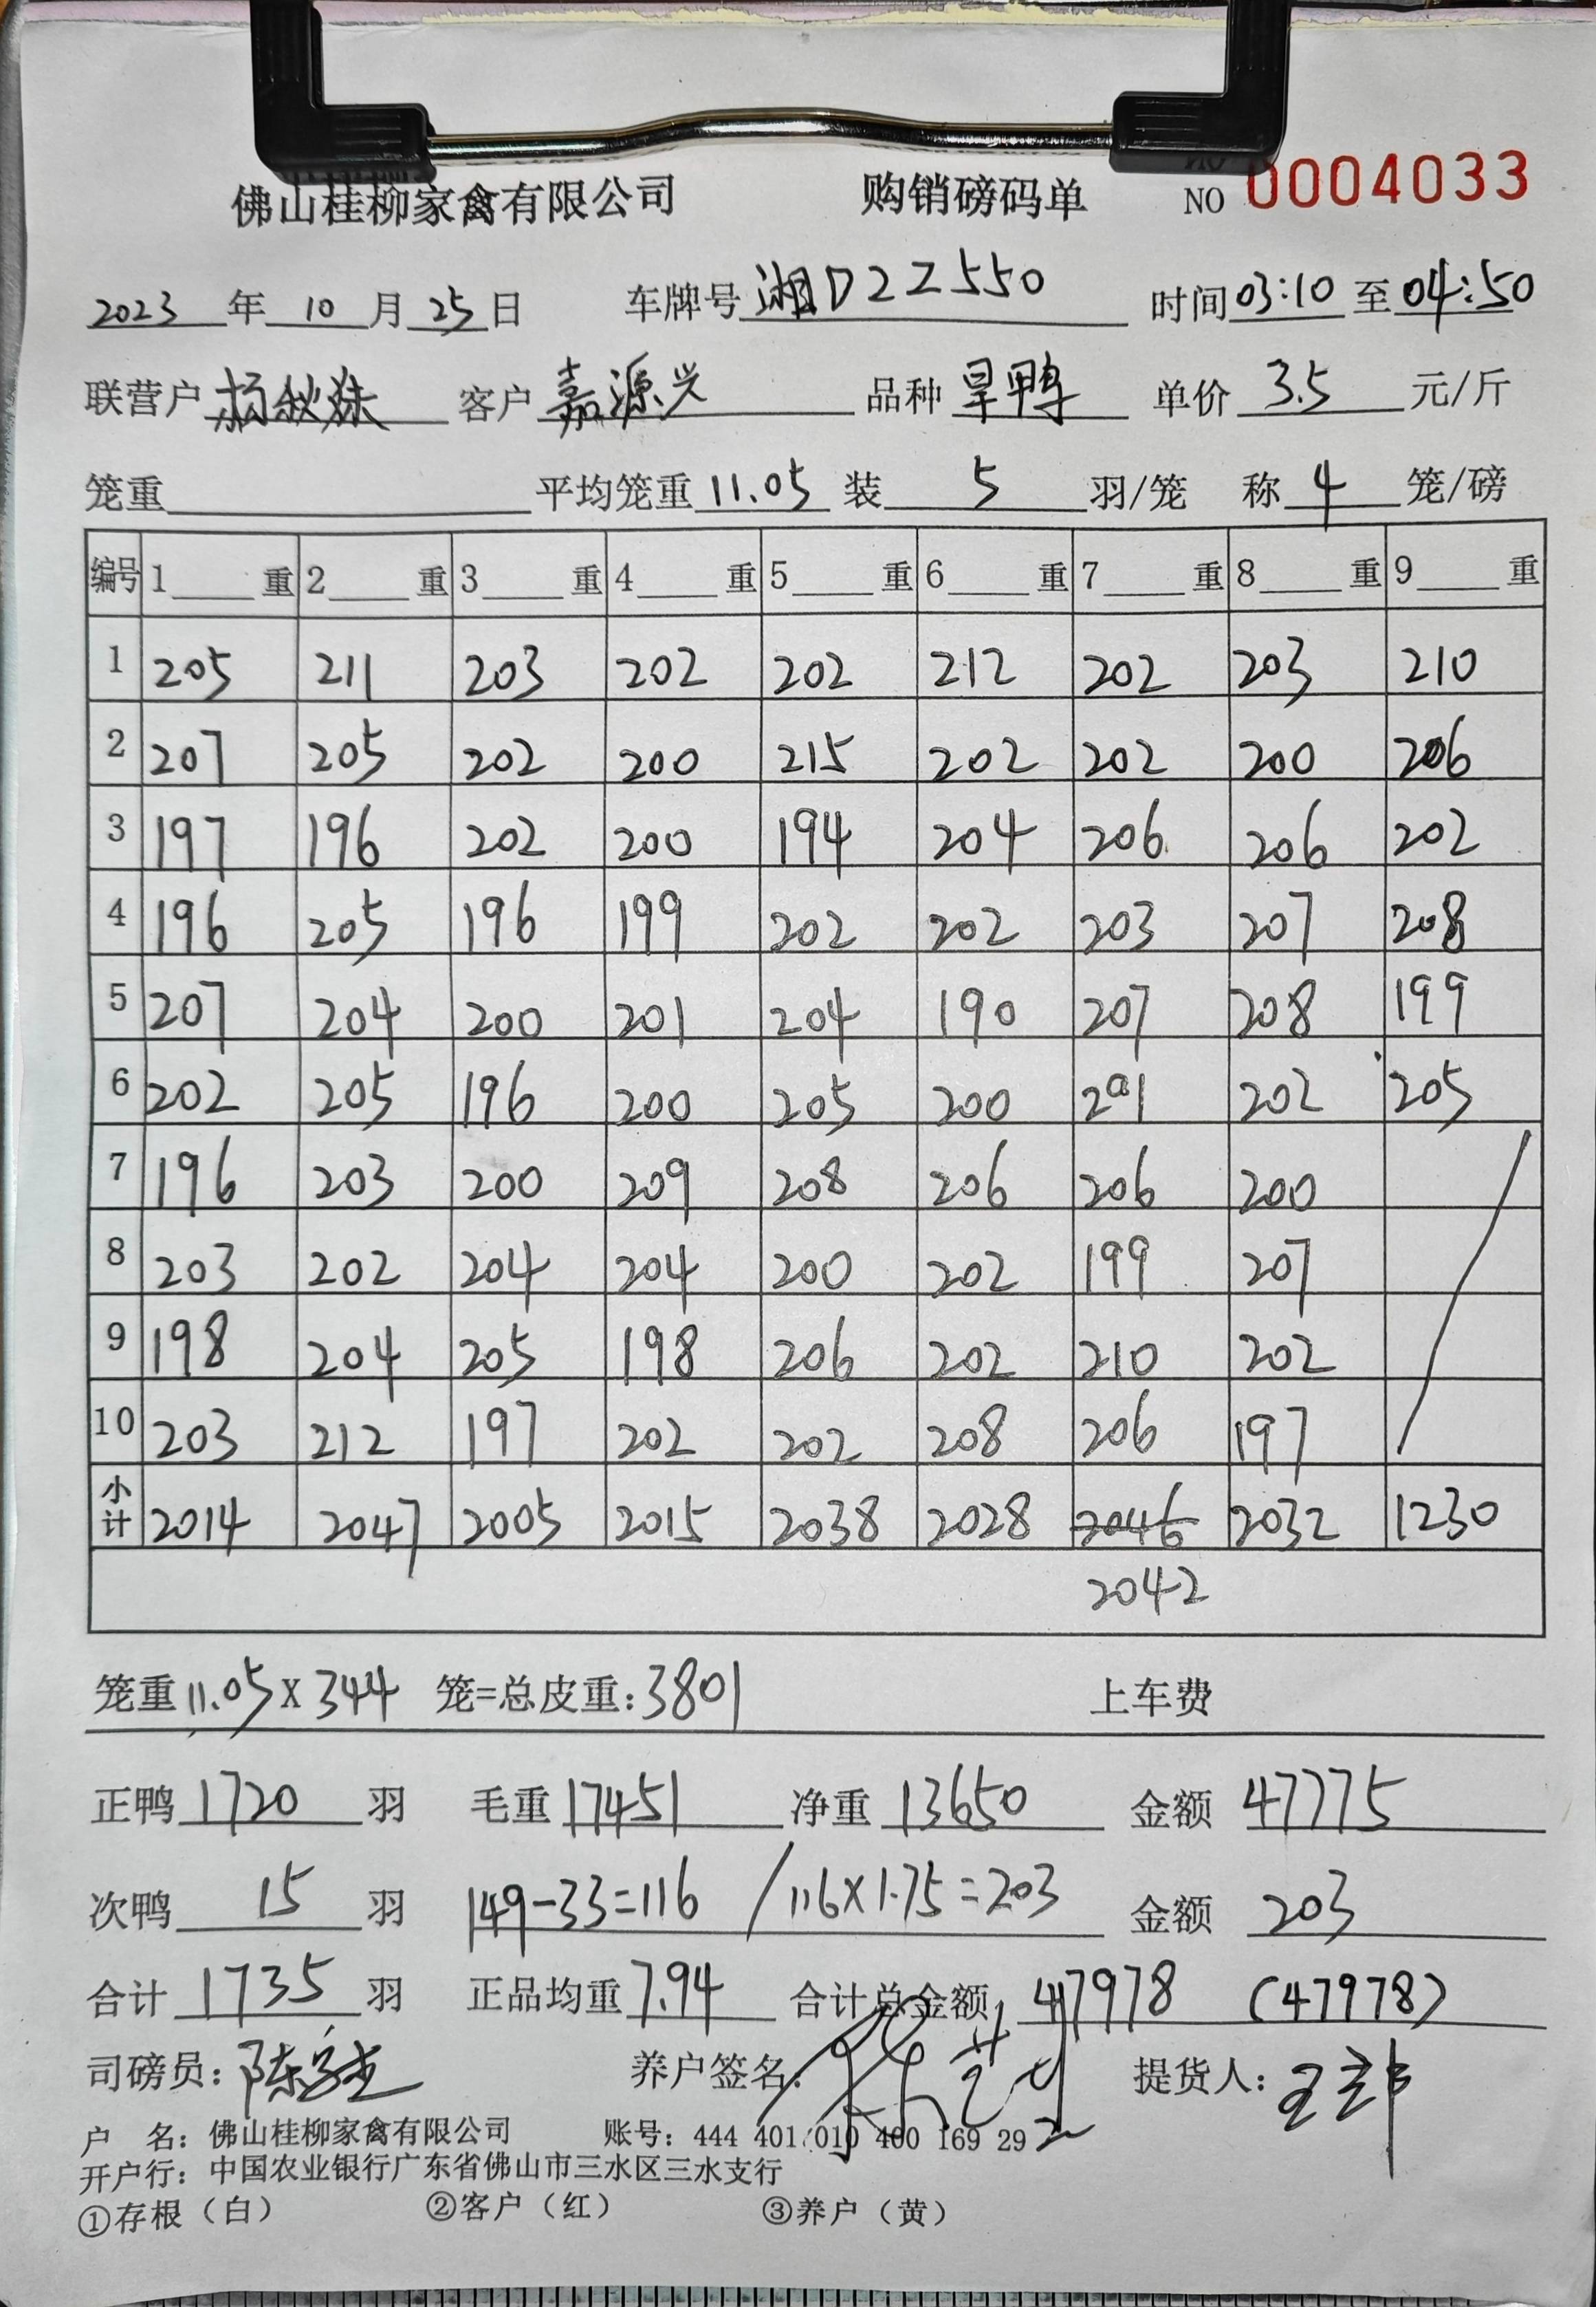 佛山桂柳家禽有限公司 购销磅码单 NO 0004033
2023年10月25日 车牌号湘D2Z550 时间03:10至04:50
联营户杨秋妹 客户嘉源兴 品种旱鸭 单价3.5元/斤
笼重 平均笼重11.05 装5羽/笼 称4笼/磅
编号 1 重 2 重 3 重 4 重 5 重 6 重 7 重 8 重 9 重
1 205 211 203 202 202 212 202 203 210
2 207 205 202 200 215 202 202 200 206
3 197 196 202 200 194 204 206 206 202
4 196 205 196 199 202 202 203 207 208
5 207 204 200 201 204 190 207 208 199
6 202 205 196 200 205 200 201 202 205
7 196 203 200 209 208 206 206 200
8 203 202 204 204 200 202 199 207
9 198 204 205 198 206 202 210 202
10 203 212 197 202 202 208 206 197
小计 2014 2047 2005 2015 2038 2028 2046 2032 1230
2042
笼重11.05X344 笼=总皮重:3801 上车费
正鸭1720羽 毛重17451 净重13650 金额47775
次鸭15羽 149-33=116 /116X1.75=203 金额203
合计1735羽 正品均重7.94 合计总金额47978 (47978)
司磅员:陈 养户签名: 提货人:王
户 名:佛山桂柳家禽有限公司 账号:444 401 010 400 169 29
开户行:中国农业银行广东省佛山市三水区三水支行
①存根（白） ②客户（红） ③养户（黄）